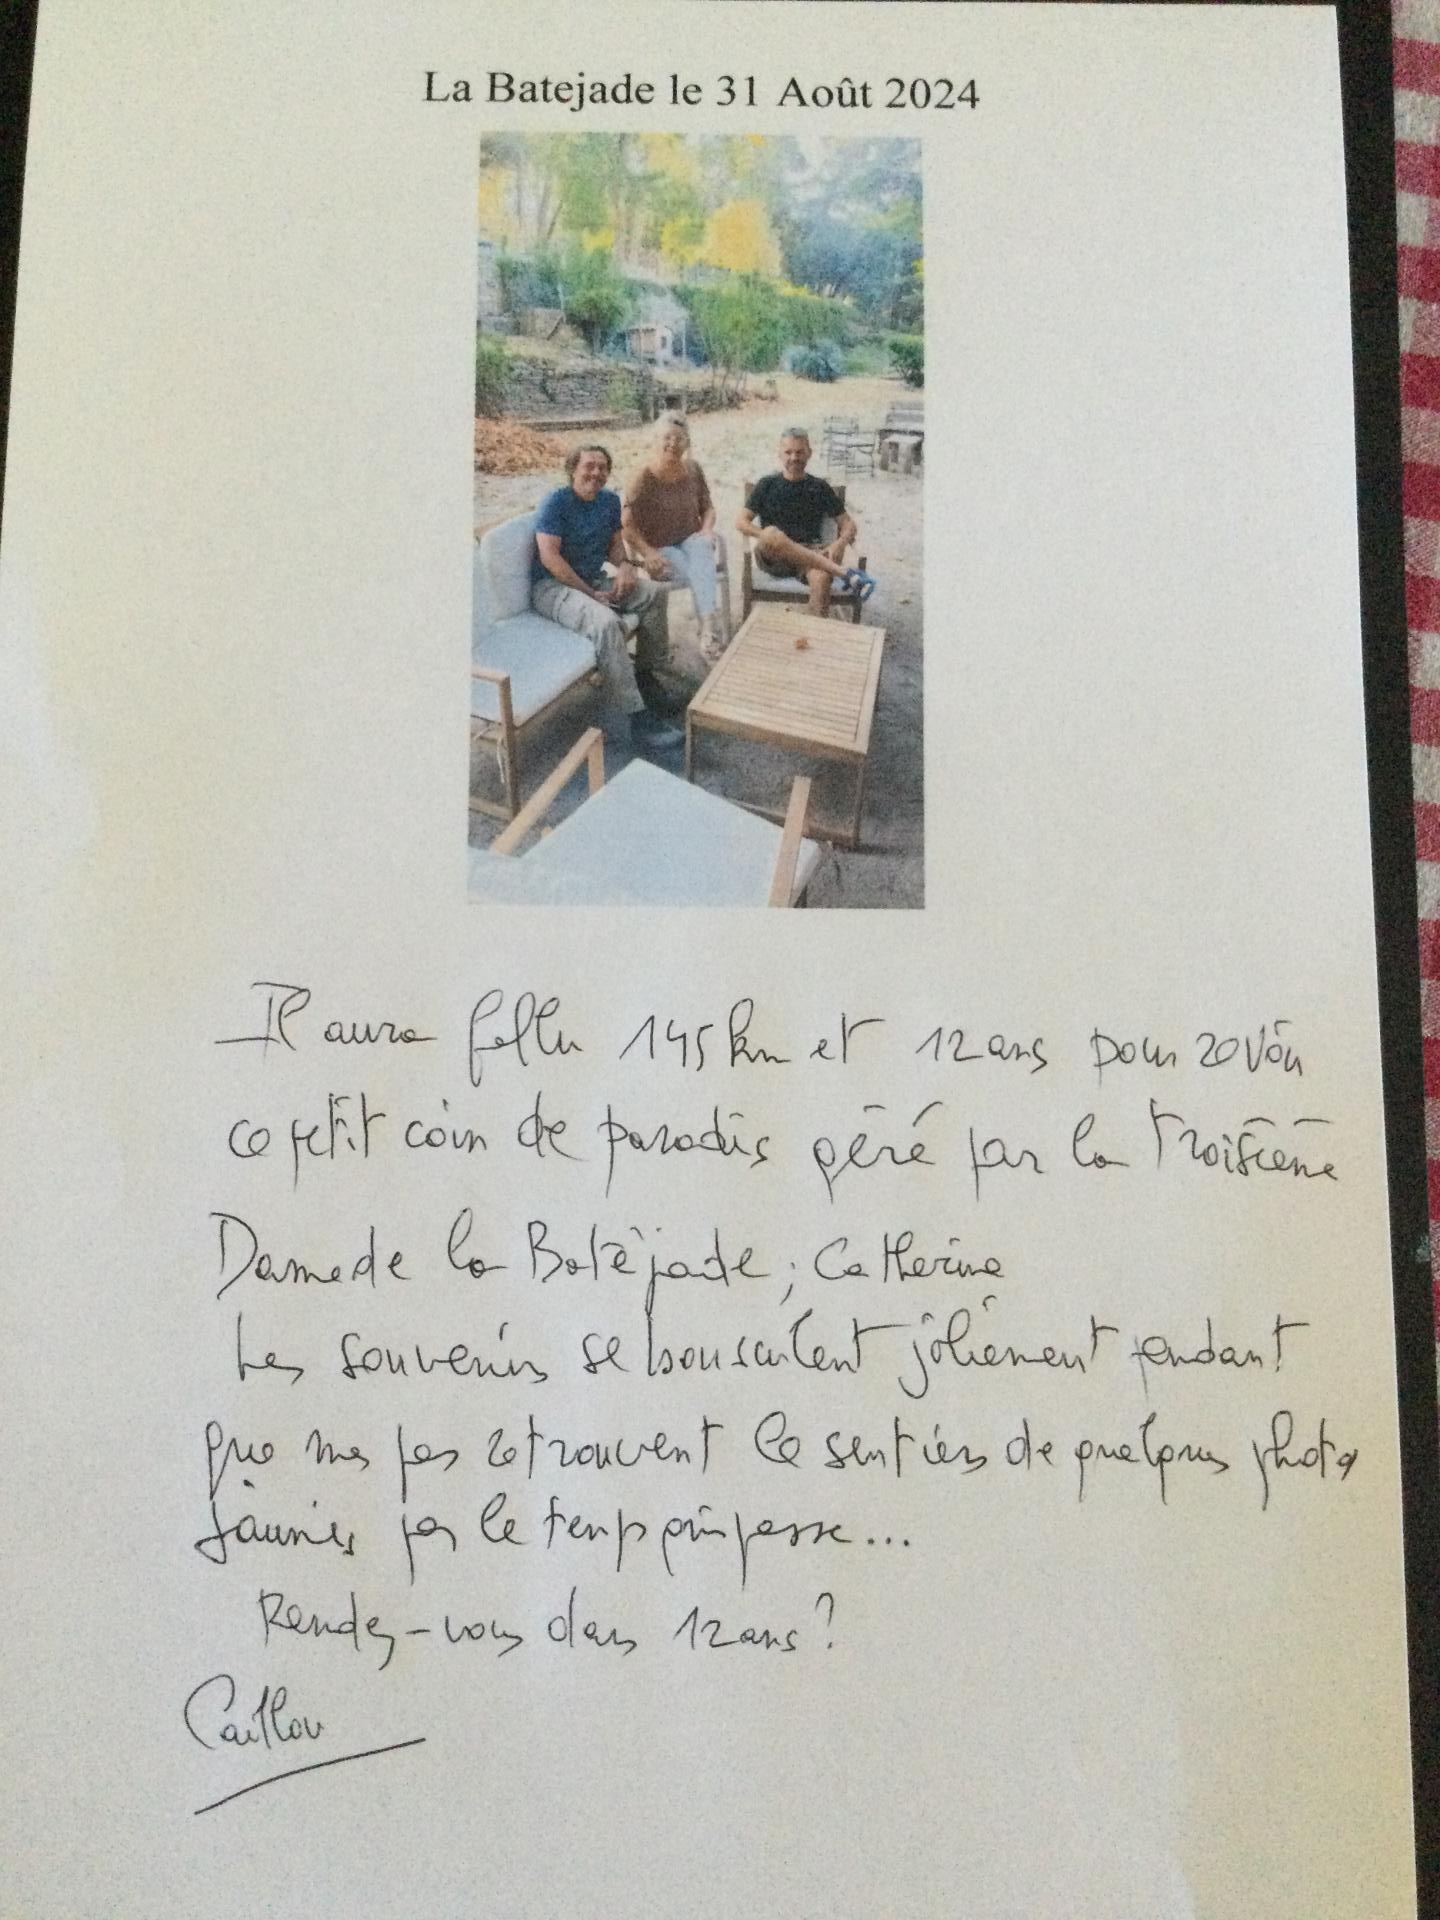 La Batejade le 31 Août 2024
Il aura fallu 145 km et 12 ans pour revoir
ce petit coin de paradis géré par la troisième
Dame de la Batéjade ; Catherine
Les souvenirs se bousculent joliement pendant
que mes pas retrouvent le sentiers de quelques photos
jaunies par le temps qui passe...
Rendez-vous dans 12 ans ?
Caillou